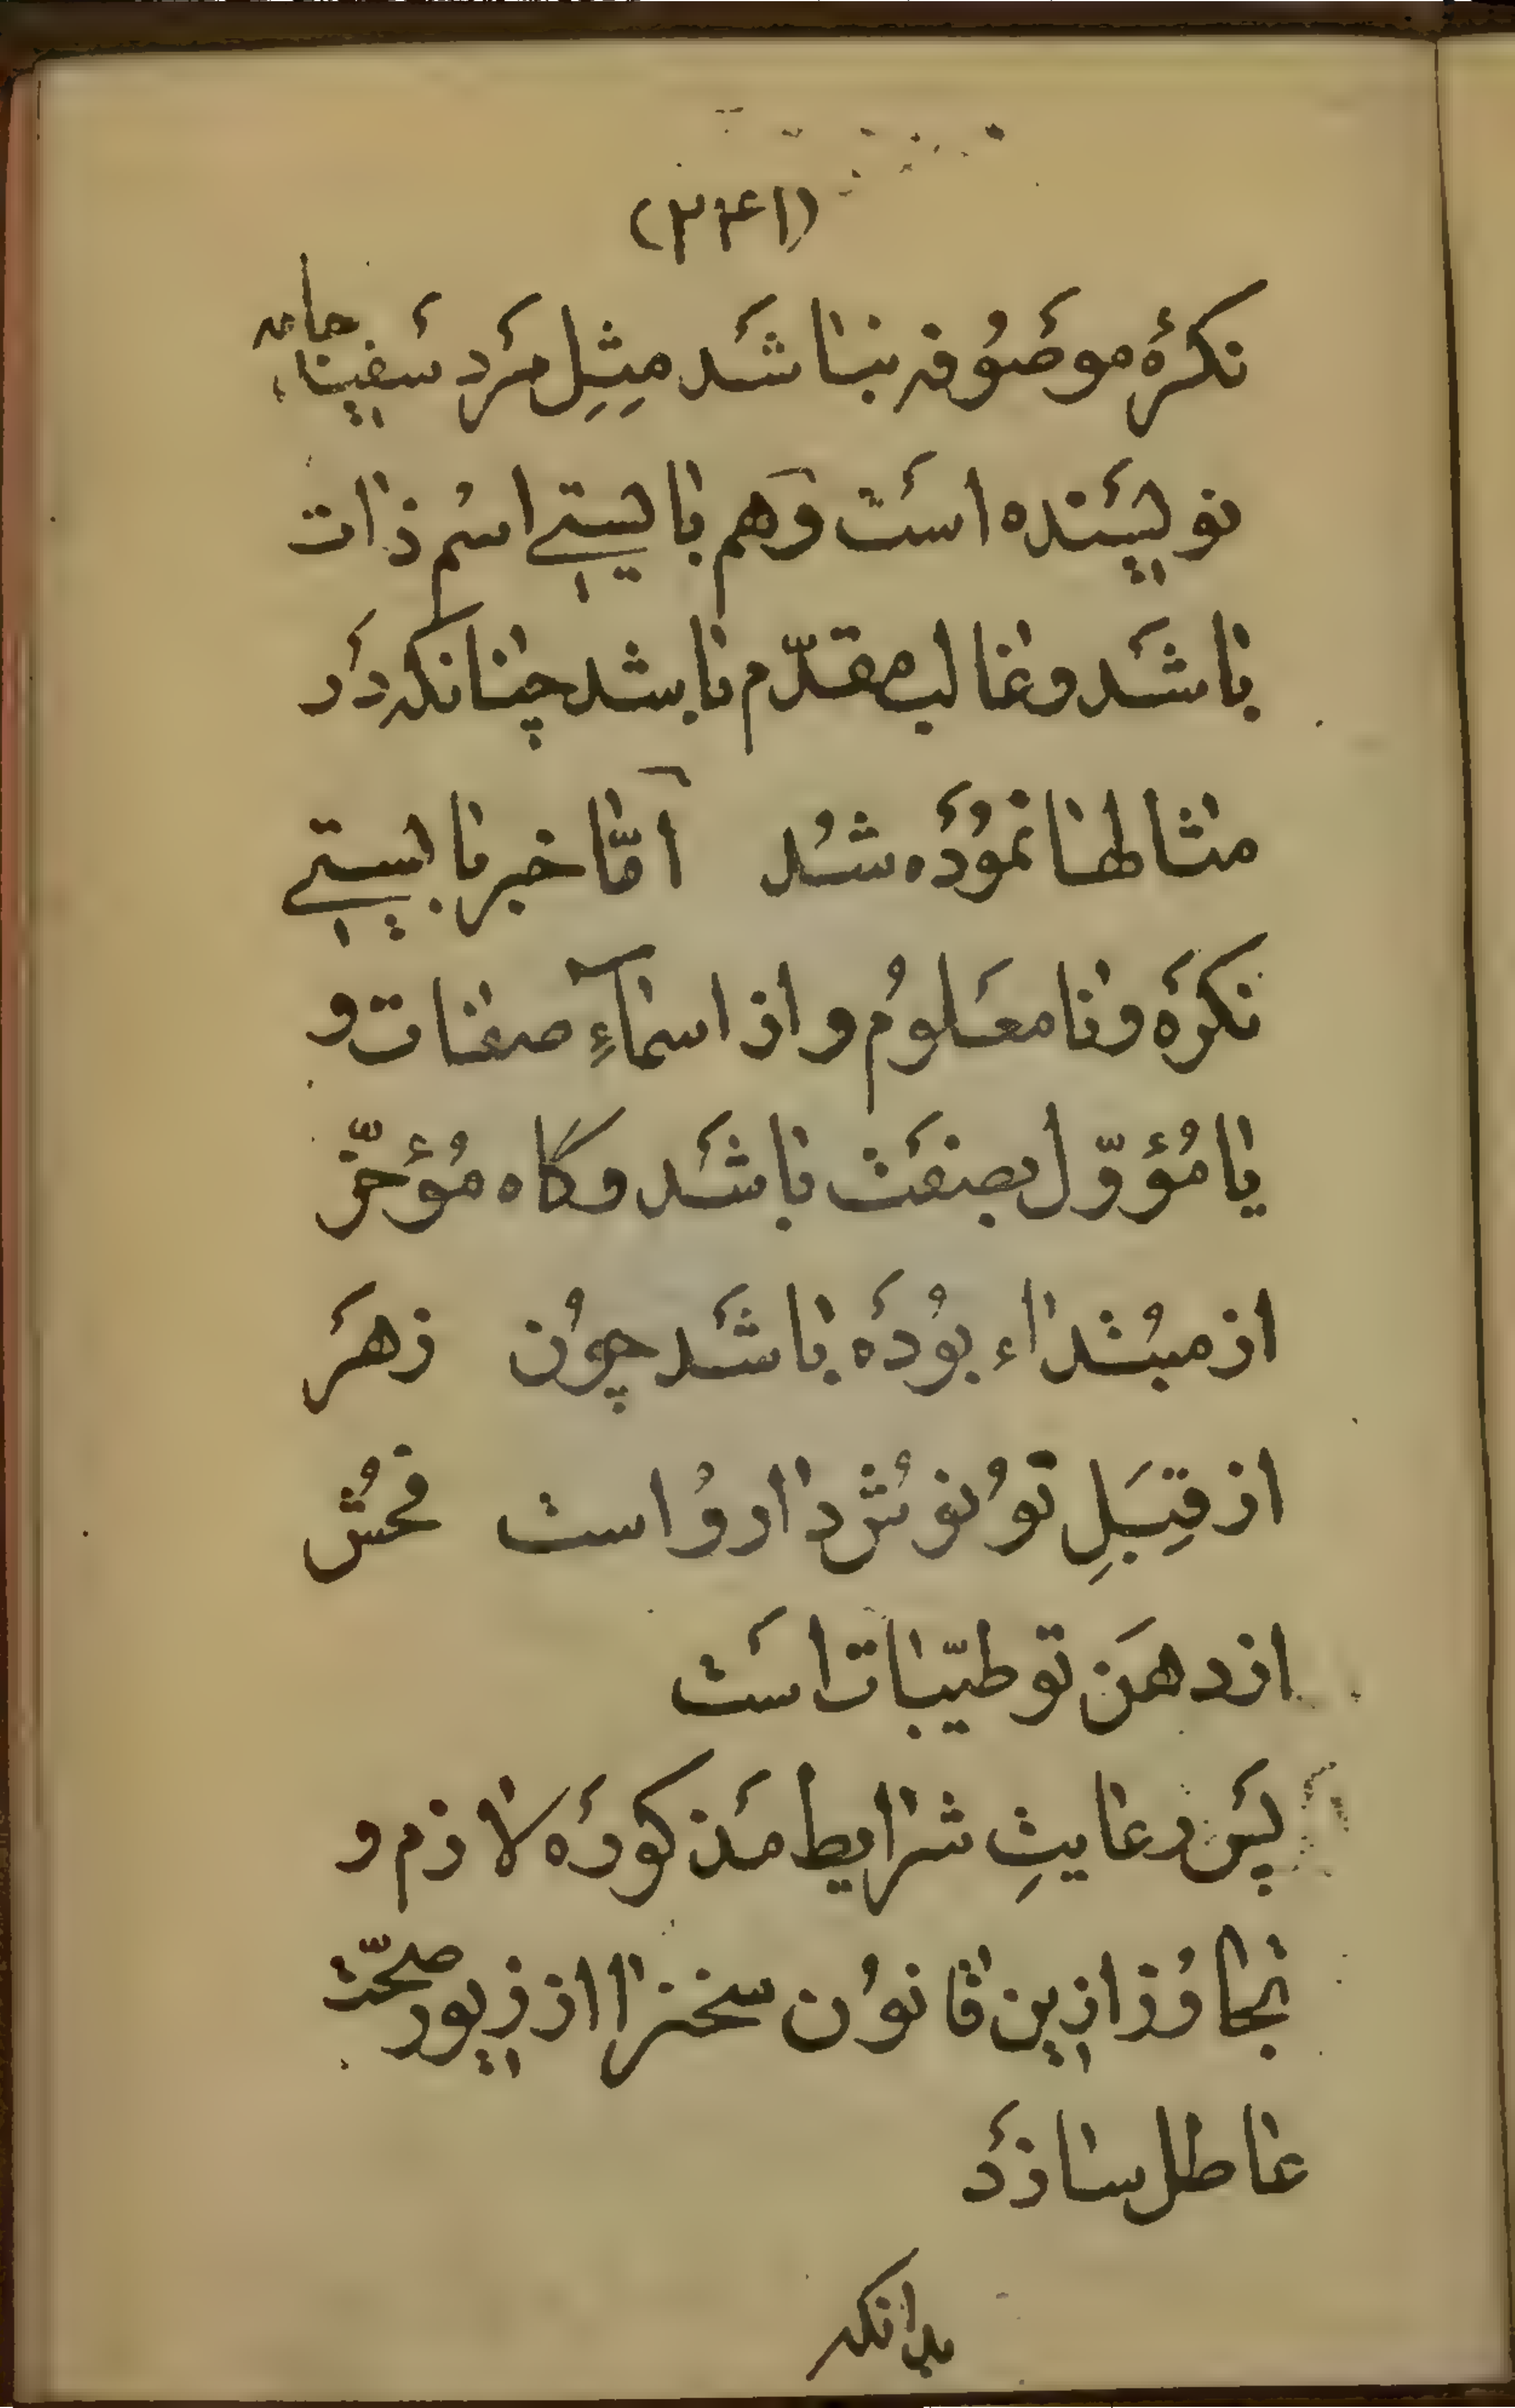 (۲۴۱)
نکرۀ موصُوفه بناشَد مِثِلِ مَرد سَفیناء جامه
نویسَنده استَ وَهم بایستے اسُم ذات
باشَد وغالب مقدّم باشد چنانکه دَر
مثالها نمُودَه شُد امّا خبر بایستے
نکرَه ونا معَلومُ واز اسمآءِ صفات و
یا مُؤوّل بصفَت باشَد وگاه مُؤخّر
از مبُتداء بوُدَه باشَد چوُن زهَر
از قِبَلِ توُ نوُش داروُ است فحُش
از دهَن تو طیّبات استَ
پسَ رعایتِ شرایط مَذکورَه لازم و
تجاوُز ازین قانوُن سخنرا از زیور صحّت
عاطل سازَد
بدانکه